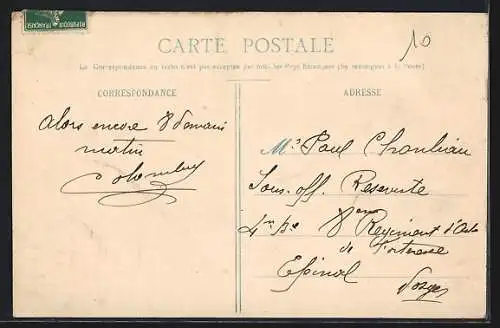 REPUBLIQUE FRANÇAISE
CARTE POSTALE
10
La Correspondance au recto n'est pas acceptée par tous les Pays Étrangers (Se renseigner à la Poste)
CORRESPONDANCE
Alors encore 8 demain
matin
ADRESSE
Mr Paul
Sous-off. Reserviste
8eme Regiment d'Art
de Forteresse
Epinal
Vosges